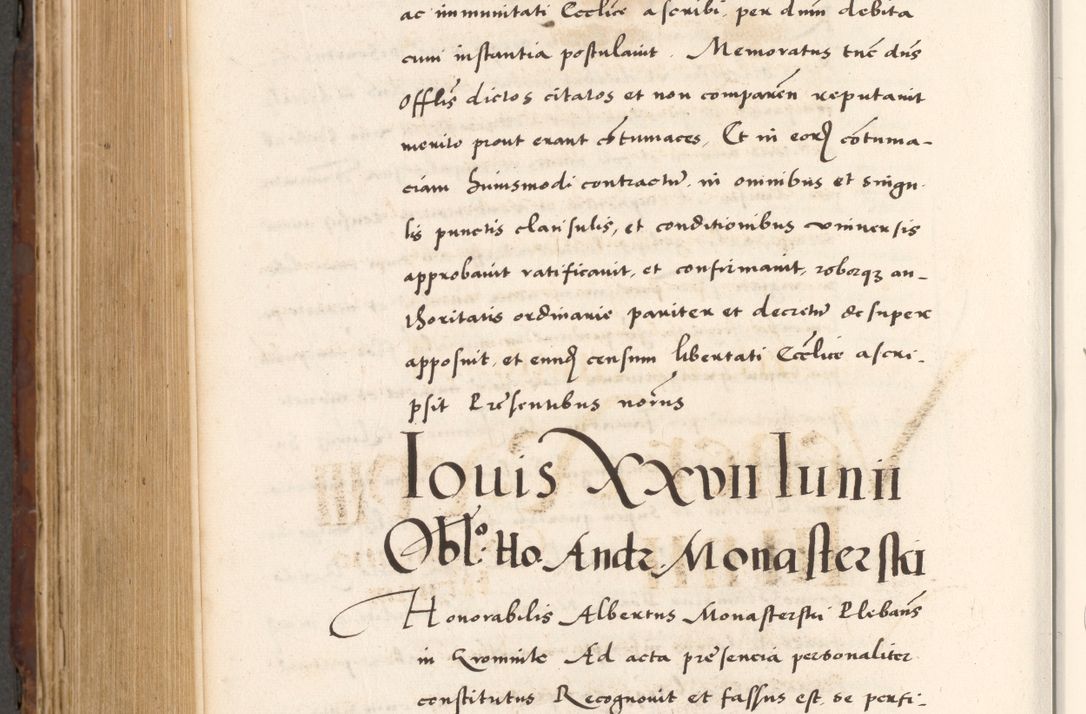 ac immunitati Eccl̄ie ascribi, per dnm̄ debita
cum instantia postulauit. Memoratus tūc dn̄s
Offlīs dictos citatos et non comparēn reputauit
merito prout erant cōtumaces, Et in eorꝝ cōtuma-
ciam huiusmodi contractū, in omnibus et singu-
lis punctis clausulis, et conditionibus vniuersis
approbauit ratificauit, et confirmauit, roborqꝫ au-
thoritatis ordinarie pariter et decretū desuper
apposuit, et eundꝫ censum libertati Eccl̄ie ascri-
psit Presentibus nōrus
Iouis XXVII Iunii
Obl.º Ho. Andr. Monasterski
Honorabilis Albertus Monasterski Plebanꝰ
in Kromnilo Ad acta presencia personaliter
constitutus Recognouit et fassus est, se perfi-